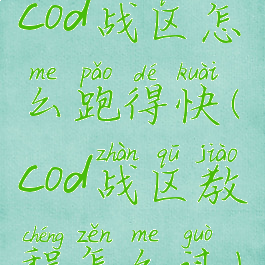 cod战区怎
me pǎo dé kuài
么跑得快(
zhàn qū jiào
cod战区教
chéng zěn me guò
程怎么过)